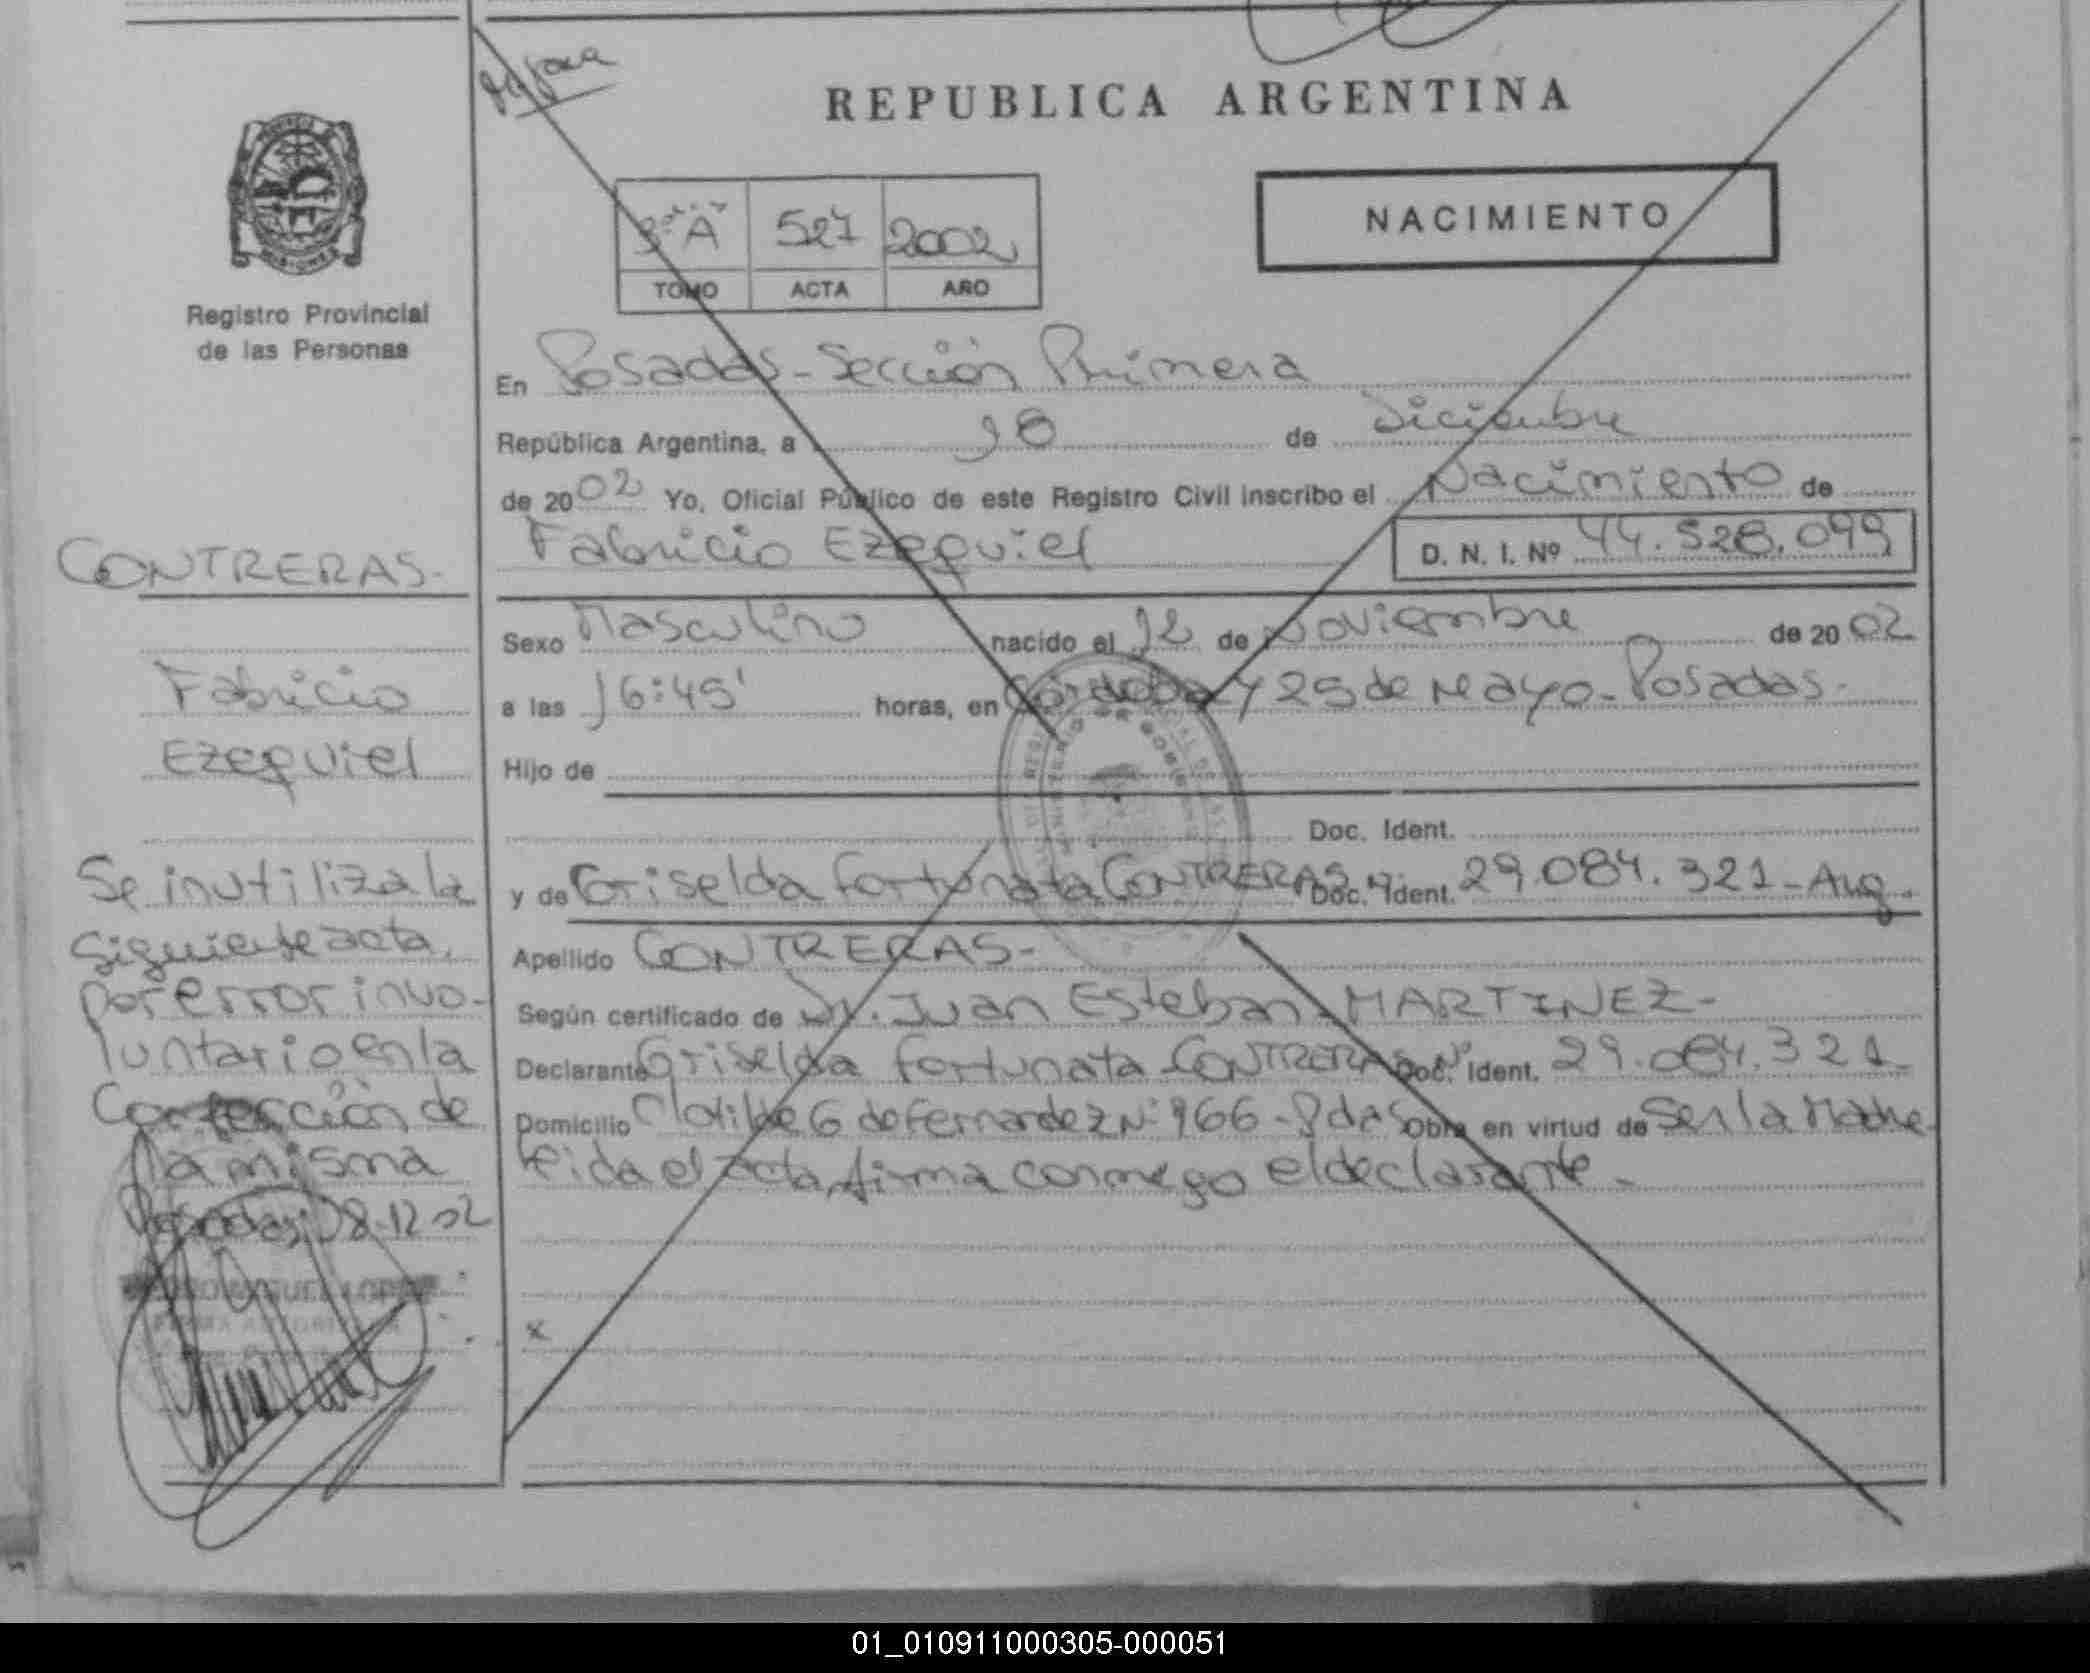 REPUBLICA ARGENTINA
NACIMIENTO
3º "A" 527 2002
TOMO ACTA AÑO
Registro Provincial
de las Personas
En Posadas - Sección Primera
República Argentina, a 18 de Diciembre
de 2002 Yo, Oficial Público de este Registro Civil inscribo el Nacimiento de
Fabricio Ezequiel D. N. I. Nº 44.528.099
CONTRERAS.
Fabricio
Ezequiel
Sexo Masculino nacido el 12 de Noviembre de 2002
a las 16:45' horas, en Córdoba y 25 de Mayo - Posadas.
Hijo de
Doc. Ident.
y de Griselda Fortunata CONTRERAS Doc. Ident. 29.084.321 - Arg.
Apellido CONTRERAS -
Según certificado de Dr. Juan Esteban MARTINEZ -
Declarante Griselda Fortunata CONTRERAS Nº Doc. Ident. 29.084.321
Domicilio Clotilde G de Fernandez Nº 966 - Pdas Obra en virtud de Ser la Madre -
leida el acta, firma conmigo el declarante -
x
Se inutiliza la
siguiente acta,
por error invo-
luntario en la
Confección de
la misma
Posadas, 18-12-02
MIGUEL LOPEZ
FIRMA AUTORIZADA
01_010911000305-000051